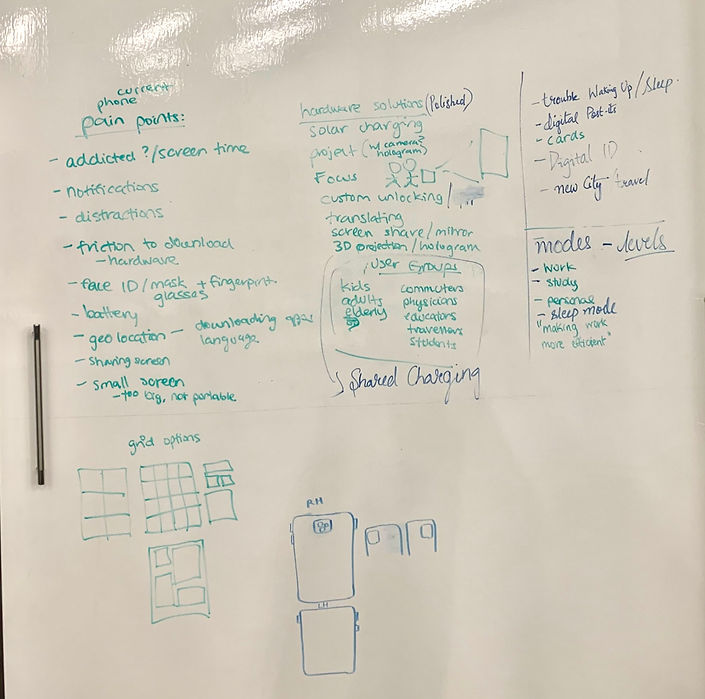 current
phone
pain points:
- addicted?/screen time
- notifications
- distractions
- friction to download
- hardware
- face ID/mask + fingerprint
glasses
- battery
- geo location - downloading apps
language
- sharing screen
- small screen
- too big, not portable
hardware solutions (Polished)
solar charging
project (w/ camera?
hologram)
Focus
custom unlocking/
translating
screen share/mirror
3D projection/hologram
User Groups
kids
adults
elderly
commuters
physicians
educators
travellers
students
Shared Charging
- trouble Waking Up/Sleep.
- digital Post-its
- cards
- Digital ID
- new City travel
modes - levels
- work
- study
- personal
- sleep mode
"making work
more efficient"
grid options
RH
LH